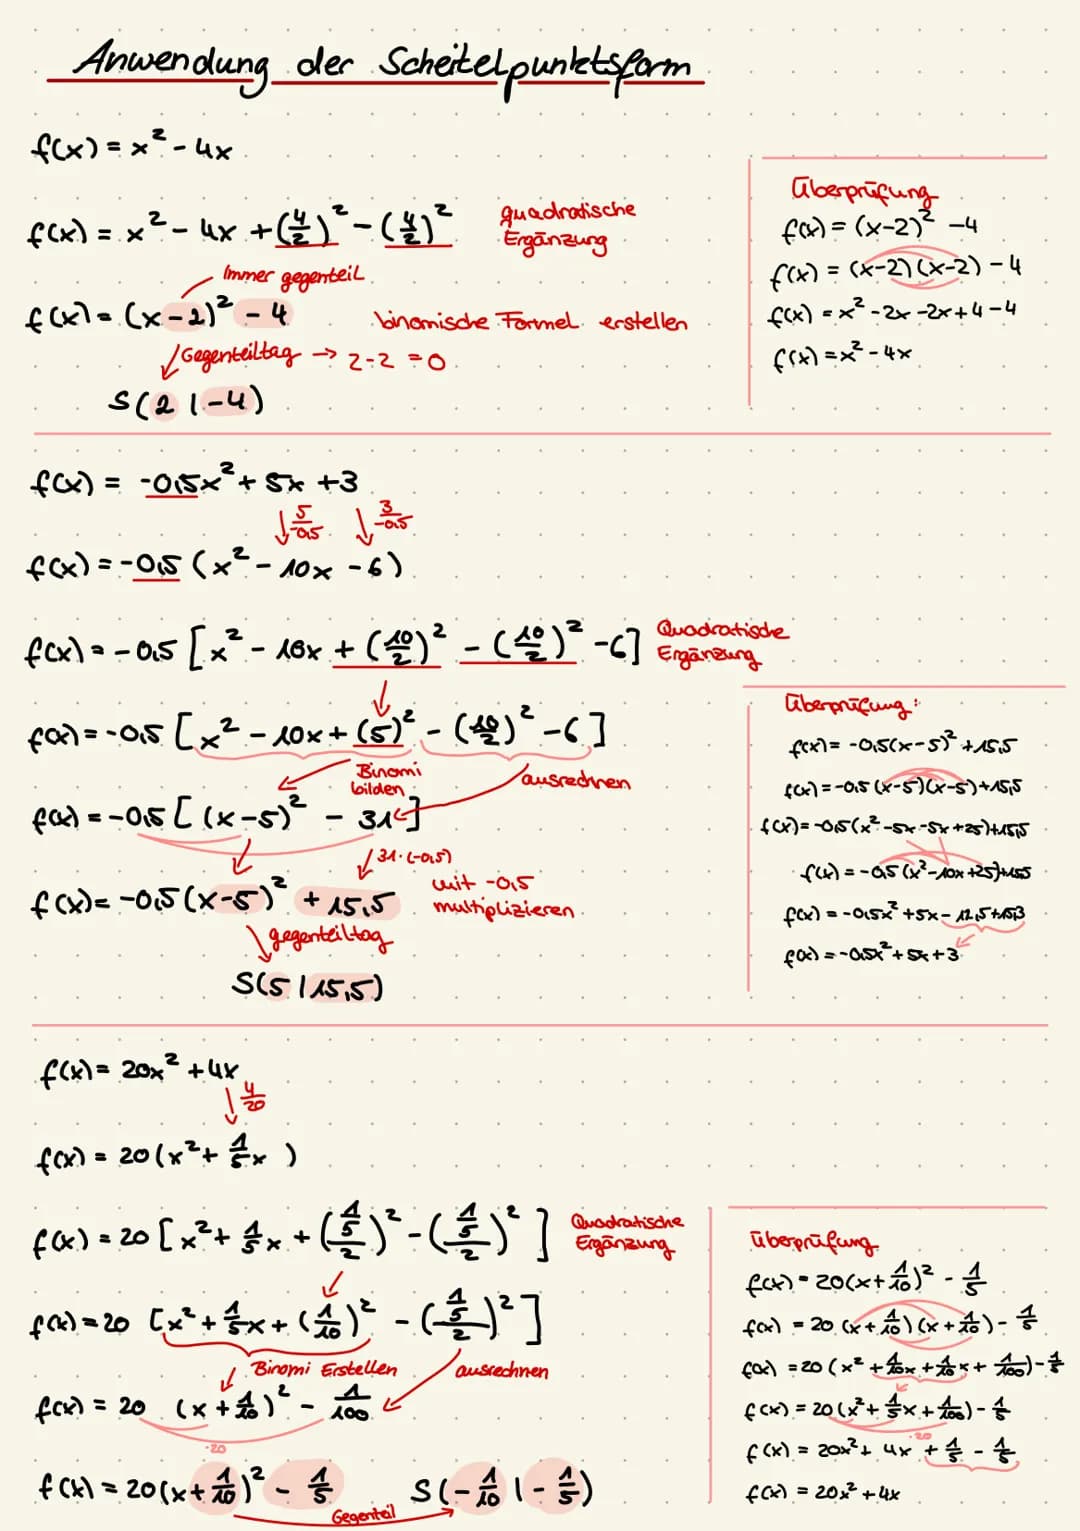 Anwendung der Scheitelpunktsform
f(x) = x² - 4x
f(x) = x² - 4x + (4/2)² - (4/2)² quadratische Ergänzung
Immer gegenteil
f(x) = (x-2)² - 4 binomische Formel erstellen
Gegenteiltag → 2-2 = 0
S(2 | -4)
Überprüfung
f(x) = (x-2)² - 4
f(x) = (x-2)(x-2) - 4
f(x) = x² - 2x - 2x + 4 - 4
f(x) = x² - 4x
f(x) = -0,5x² + 5x + 3
↓ 5/-0,5 ↓ 3/-0,5
f(x) = -0,5 (x² - 10x - 6)
f(x) = -0,5 [x² - 10x + (10/2)² - (10/2)² - 6] Quadratische Ergänzung
f(x) = -0,5 [x² - 10x + (5)² - (10/2)² - 6]
Binomi bilden ausrechnen
f(x) = -0,5 [(x-5)² - 31]
31·(-0,5)
f(x) = -0,5(x-5)² + 15,5 mit -0,5 multiplizieren
gegenteiltag
S(5 | 15,5)
Überprüfung:
f(x) = -0,5(x-5)² + 15,5
f(x) = -0,5 (x-5)(x-5) + 15,5
f(x) = -0,5(x² - 5x - 5x + 25) + 15,5
f(x) = -0,5 (x² - 10x + 25) + 15,5
f(x) = -0,5x² + 5x - 12,5 + 15,3
f(x) = -0,5x² + 5x + 3
f(x) = 20x² + 4x
↓ 4/20
f(x) = 20(x² + 1/5x )
f(x) = 20 [x² + 1/5x + (1/5/2)² - (1/5/2)²] Quadratische Ergänzung
f(x) = 20 [x² + 1/5x + (1/10)² - (1/5/2)²]
Binomi Erstellen ausrechnen
f(x) = 20 (x + 1/10)² - 1/100
·20
f(x) = 20(x + 1/10)² - 1/5 S(-1/10 | -1/5)
Gegenteil
Überprüfung
f(x) = 20(x + 1/10)² - 1/5
f(x) = 20 (x + 1/10)(x + 1/10) - 1/5
f(x) = 20 (x² + 1/10x + 1/10x + 1/100) - 1/5
f(x) = 20(x² + 1/5x + 1/100) - 1/5
·20
f(x) = 20x² + 4x + 1/5 - 1/5
f(x) = 20x² + 4x